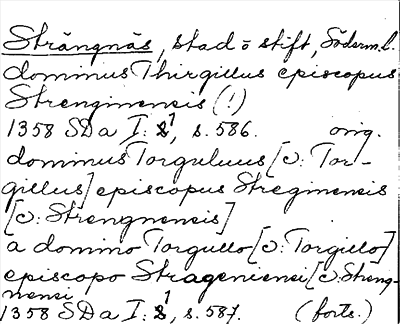 Strängnäs, stad o stift, Söderm. l.
dominus Thirgillus episcopus
Strenginensis (!)
1358 SDa I: 1, s. 586. orig.
dominus Torguluus [ɔ: Tor-
gillus] episcopus Streginensis
[ɔ: Strengnensis]
a domino Torgullo [ɔ: Torgillo]
episcopo Strageniensi [ɔ: Streng-
nensi
1358 SDa I: 1, s. 587. (forts.)